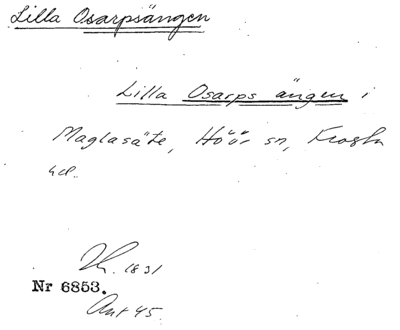 Lilla Osarpsängen
Lilla Osarps ängen i
Maglasäte, Höör sn, Frosta
hd.
1831
Nr 6853.
Ant 45.